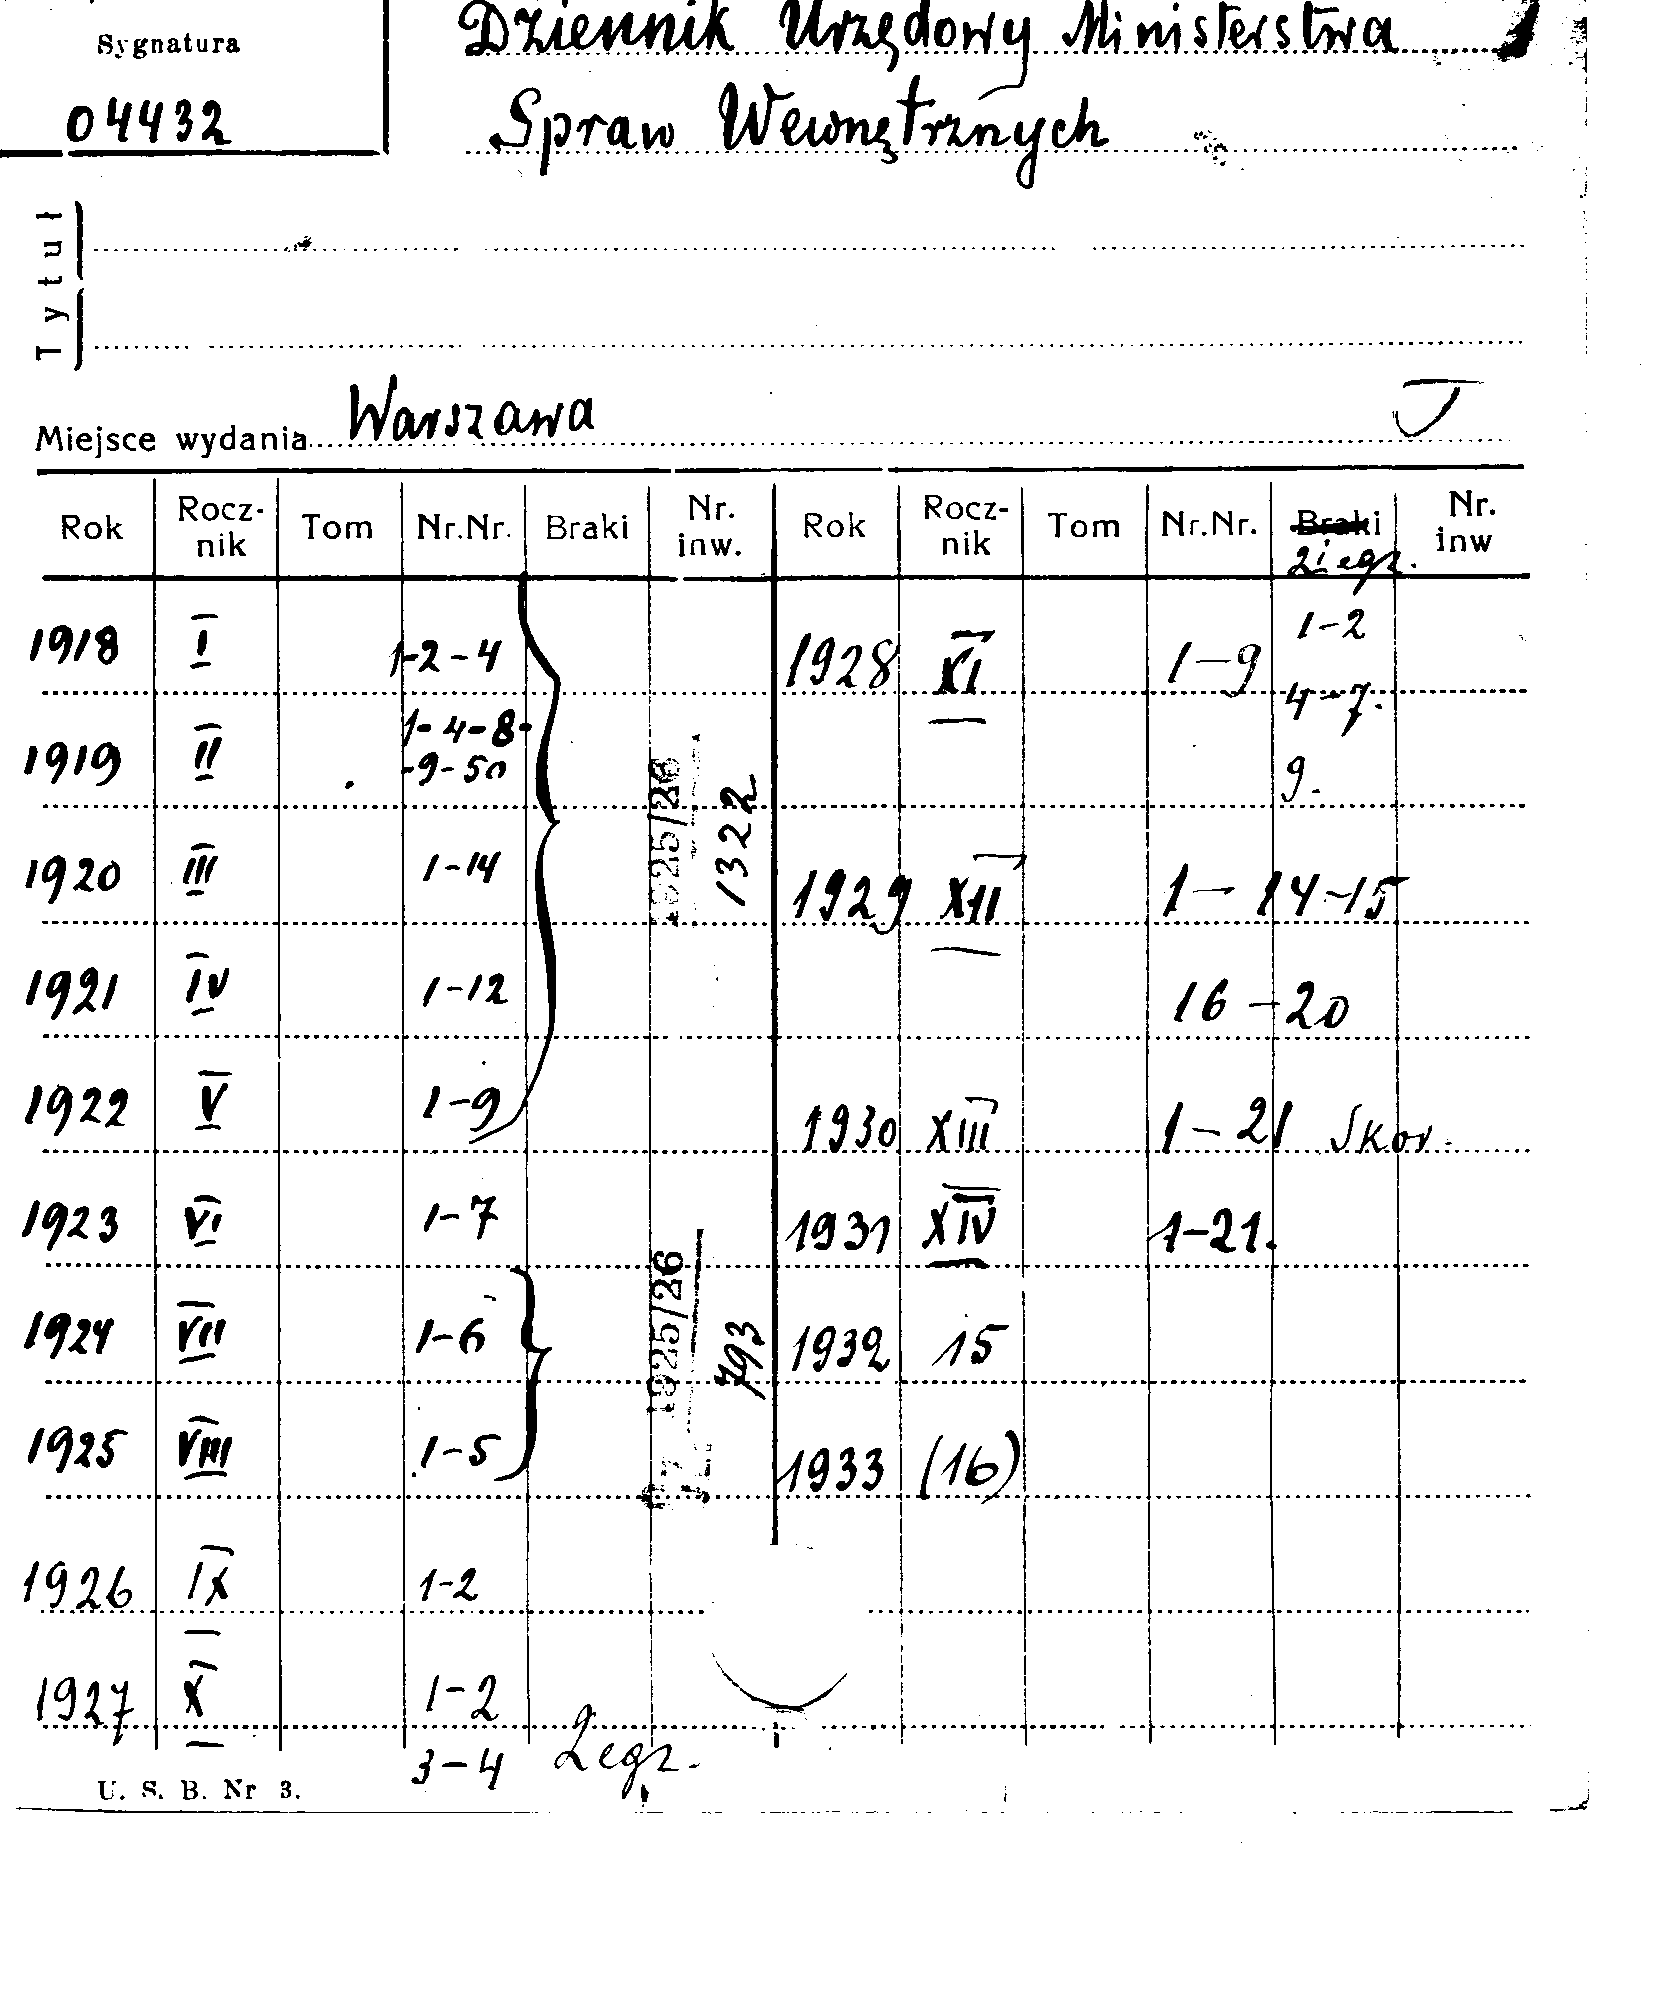 Sygnatura
04432
Dziennik Urzędowy Ministerstwa
Spraw Wewnętrznych
Tytuł
Miejsce wydania Warszawa
J
Rok Rocz-nik Tom Nr.Nr. Braki Nr. inw. Rok Rocz-nik Tom Nr.Nr. Braki Nr. inw
2 iegz.
1918 I 1-2-4
1919 II 1-4-8-
-9-50
1920 III 1-14
1921 IV 1-12
1922 V 1-9
1925/26
1322
1923 VI 1-7
1924 VII 1-6
1925 VIII 1-5
1925/26
793
1926 IX 1-2
1927 X 1-2
3-4 2 egz.
1928 XI 1-9 1-2
4-7.
9.
1929 XII 1-14-15
16-20
1930 XIII 1-21 Skor.
1931 XIV 1-21.
1932 15
1933 (16)
U. S. B. Nr 3.